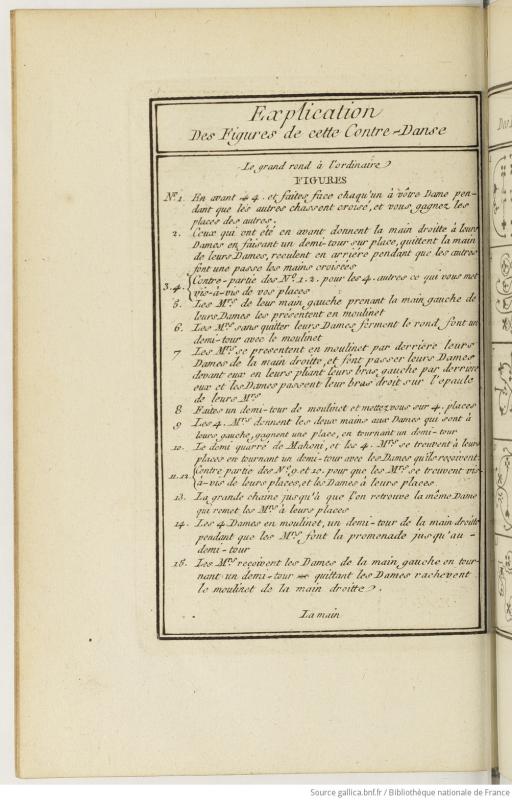 Explication
Des Figures de cette Contre-Danse
Le grand rond à l'ordinaire
FIGURES
No. 1. En avant 4. et faites face chaqu'un à vôtre Dame pen-
dant que les autres chassent croisé, et vous gagnez les
places des autres.
2. Ceux qui ont été en avant donnent la main droitte à leurs
Dames en faisant un demi-tour sur place, quittent la main
de leurs Dames, reculent en arriére pendant que les autres
font une passe les mains croisées
3.4. Contre-partie des No. 1.2. pour les 4. autres ce qui vous met
vis-à-vis de vos places
5. Les Mrs. de leur main gauche prenant la main gauche de
leurs Dames les présentent en moulinet
6. Les Mrs. sans quitter leurs Dames ferment le rond, font un
demi-tour avec le moulinet
7. Les Mrs. se presentent en moulinet par derriere leurs
Dames de la main droitte, et font passer leurs Dames
devant eux en leurs pliant leurs bras gauche par derriere
eux et les Dames passent leur bras droit sur l'epaule
de leurs Mrs
8 Faites un demi-tour de moulinet et mettez vous sur 4. places
9 Les 4. Mrs. donnent les deux mains aux Dames qui sont à
leurs gauche, gagnent une place, en tournant un demi-tour
10. Le demi quarré de Mahoni, et les 4. Mrs. se treuvent à leurs
places en tournant un demi-tour avec les Dames qu'ils reçoivent
11.12. Contre partie des No. 9. et 10. pour que les Mrs. se treuvent vis-
à-vis de leurs places, et les Dames à leurs places
13. La grande chaine jusqu'à que l'on retrouve la même Dame
qui remet les Mrs. à leurs places
14. Les 4 Dames en moulinet, un demi-tour de la main droitte
pendant que les Mrs. font la promenade jusqu'au
demi-tour
15. Les Mrs. reçoivent les Dames de la main gauche en tour-
nant un demi-tour quittant les Dames rachevent
le moulinet de la main droitte.
La main
Source gallica.bnf.fr / Bibliothèque nationale de France